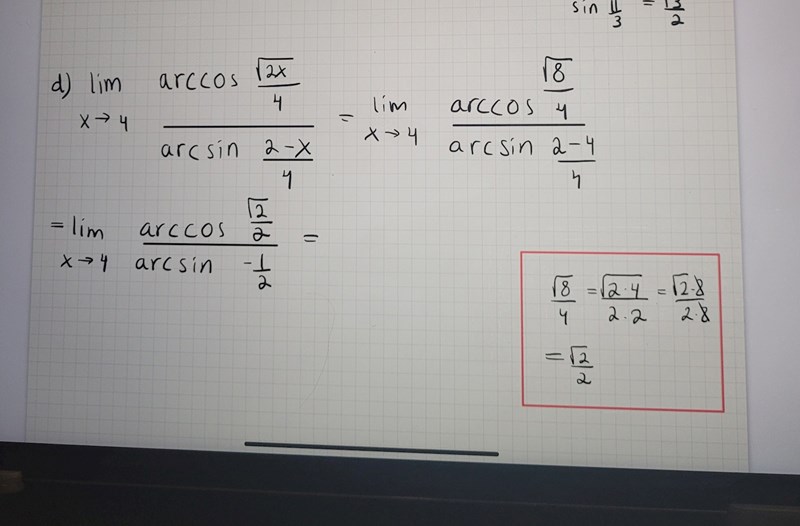 sin π/3 = √3/2
d) lim x→4 arccos √2x/4 / arcsin 2-x/4 = lim x→4 arccos √8/4 / arcsin 2-4/4
= lim x→4 arccos √2/2 / arcsin -1/2 =
√8/4 = √2·4/2·2 = √2·2/2·2
= √2/2